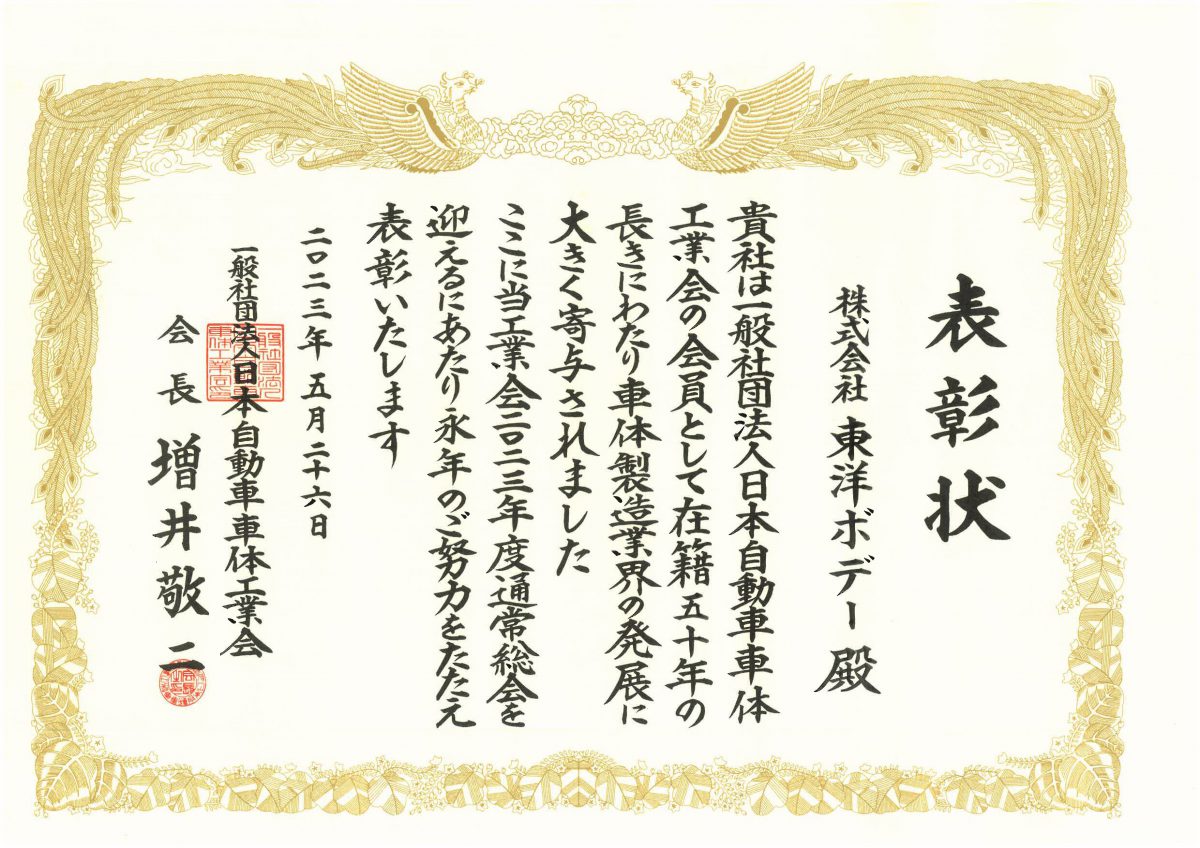 表彰状
株式会社 東洋ボデー 殿
貴社は一般社団法人日本自動車車体
工業会の会員として在籍五十年の
長きにわたり車体製造業界の発展に
大きく寄与されました
ここに当工業会二〇二三年度通常総会を
迎えるにあたり永年のご努力をたたえ
表彰いたします
二〇二三年 五月二十六日
一般社団法人日本自動車車体工業会
会長 増井敬二